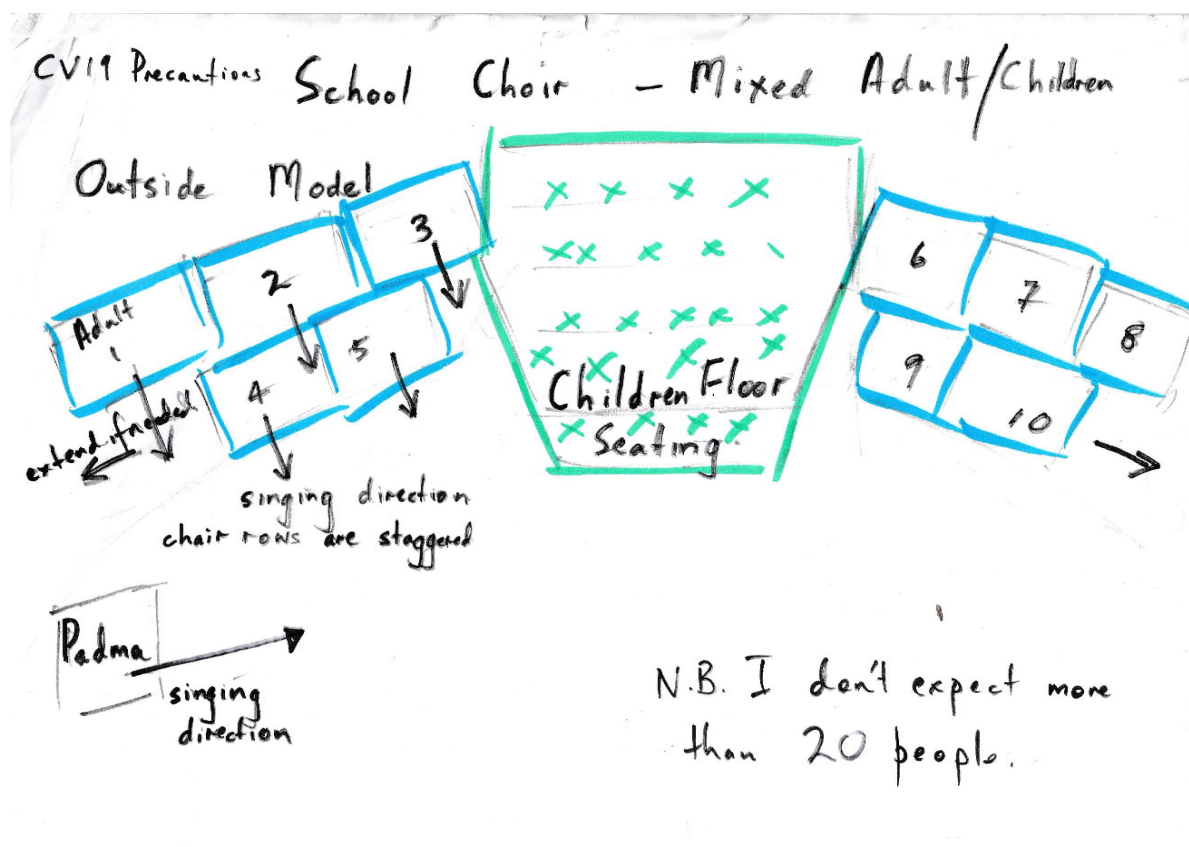 CV19 Precautions School Choir - Mixed Adult/Children
Outside Model
Adult
1
2
3
4
5
6
7
8
9
10
extend if needed
singing direction
chair rows are staggered
Children Floor
Seating
Padma
singing
direction
N.B. I don't expect more
than 20 people.